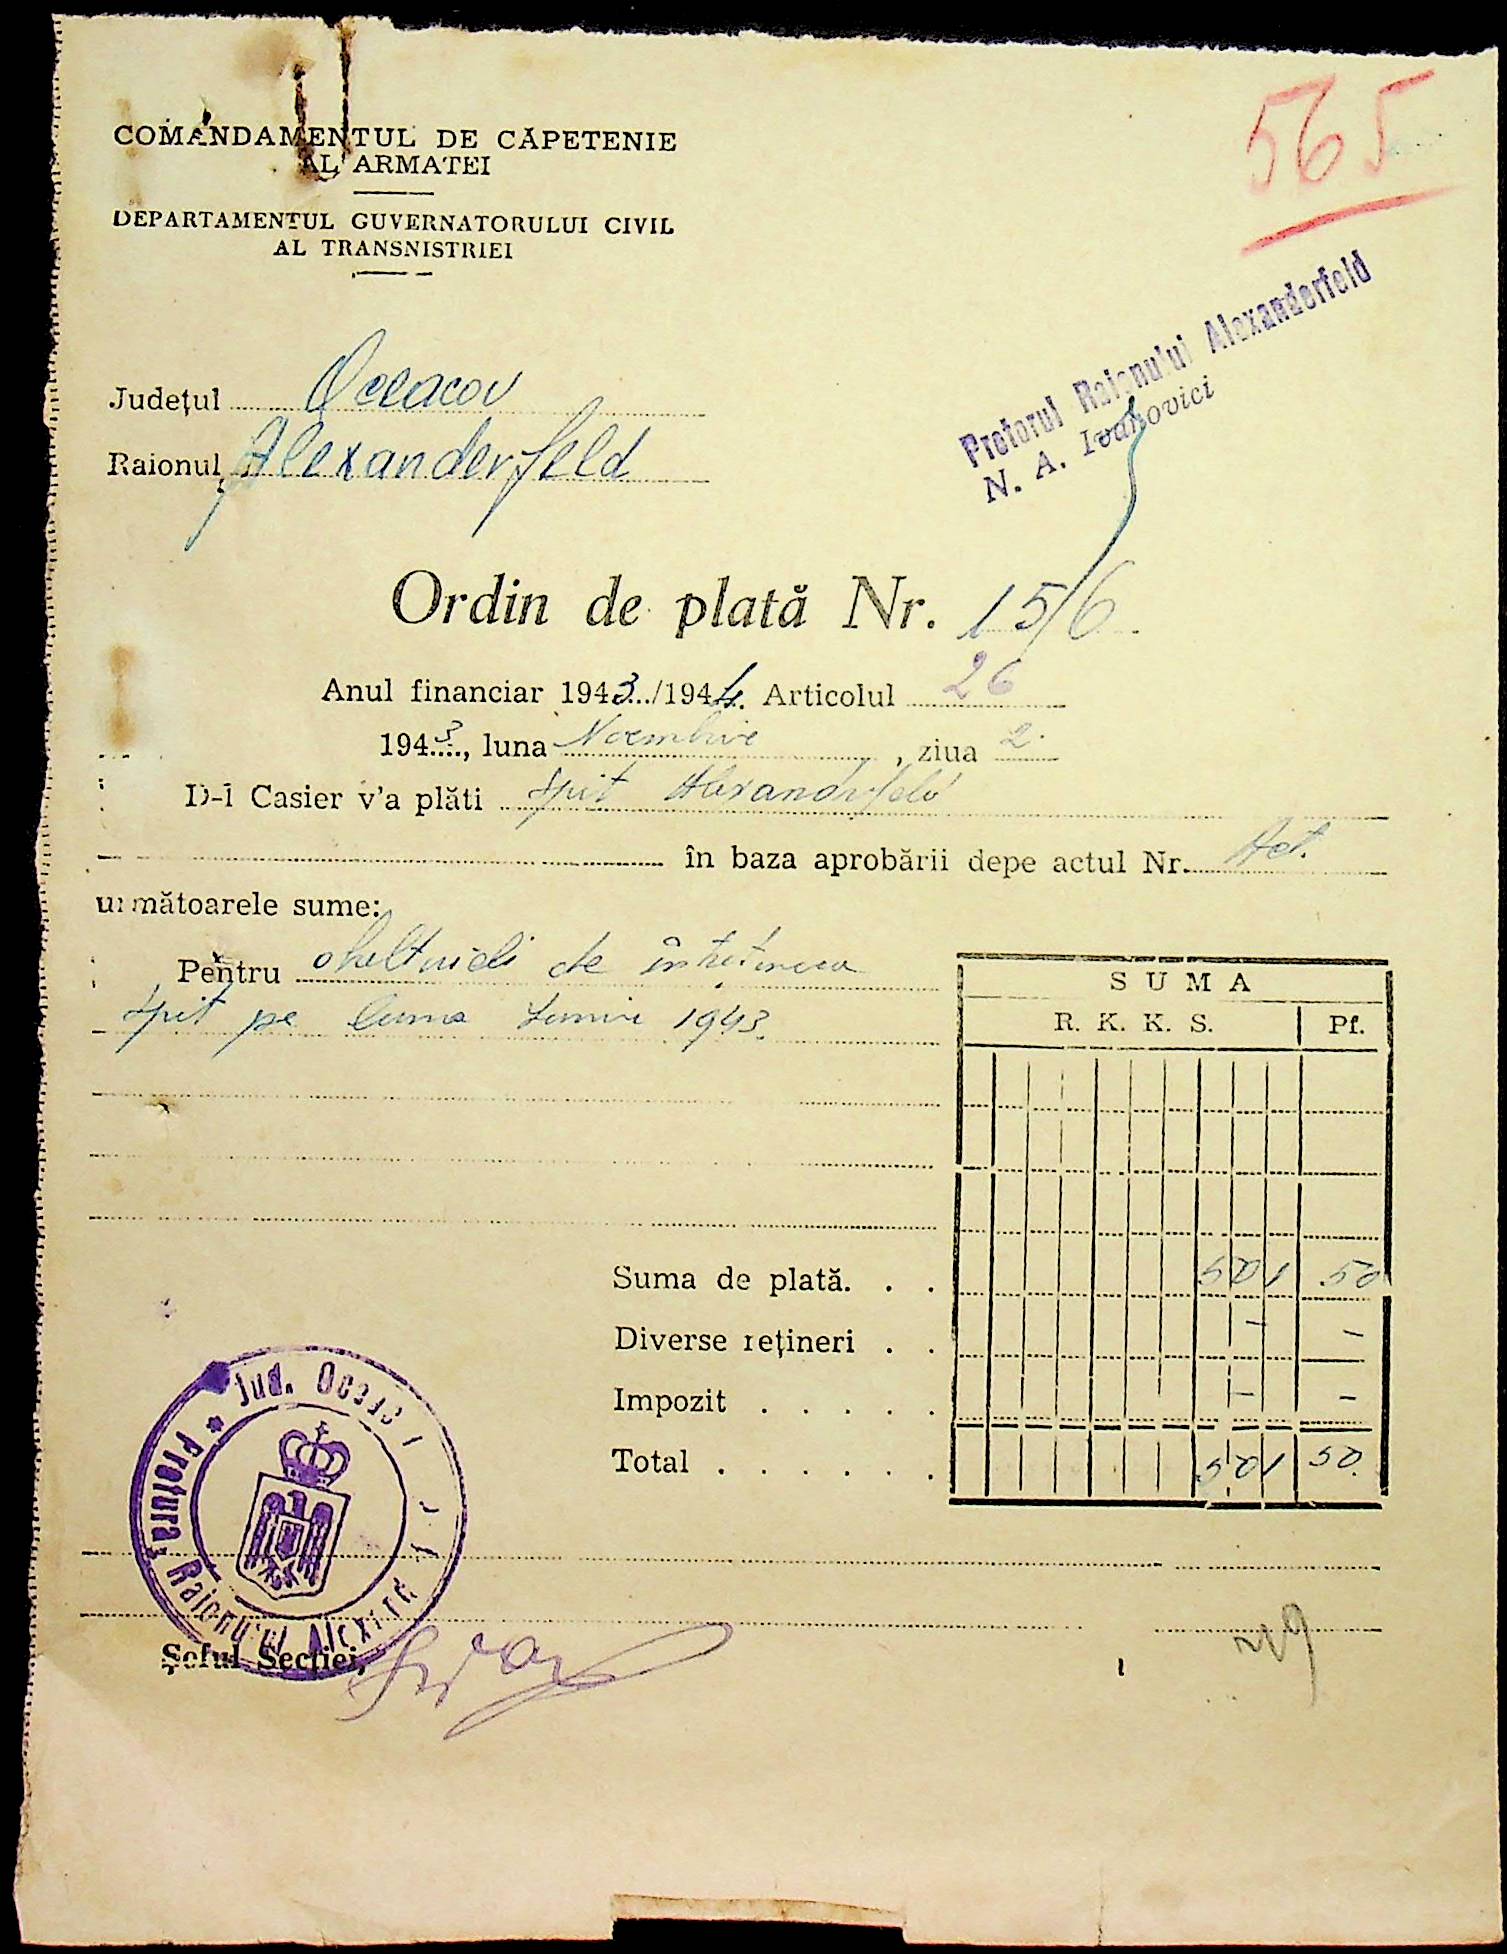 565
COMANDAMENTUL DE CĂPETENIE
AL ARMATEI
DEPARTAMENTUL GUVERNATORULUI CIVIL
AL TRANSNISTRIEI
Pretorul Raionului Alexanderfeld
N. A. Ivanovici
Județul Oceacov
Raionul Alexanderfeld
Ordin de plată Nr. 156
Anul financiar 1943/1944. Articolul 26
1943, luna Noembrie, ziua 2
D-l Casier v'a plăti Spit Alexandrfeld
în baza aprobării depe actul Nr. Act.
următoarele sume:
Pentru cheltueli de întreținerea
Spit pe luna Iunie 1943.
SUMA
R. K. K. S. Pf.
Suma de plată. . . 501 50
Diverse rețineri . . – –
Impozit . . . . . – –
Total . . . . . . 501 50
Jud. Oceacov
* Pretura Raionului
Șeful Secției,